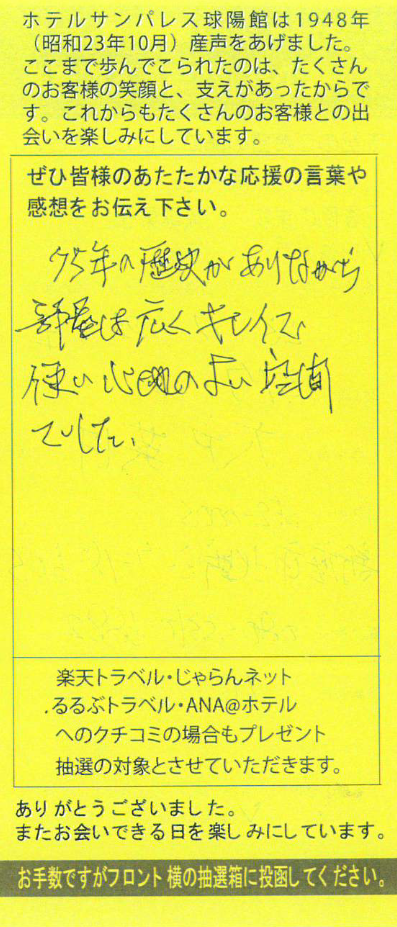 ホテルサンパレス球陽館は1948年
(昭和23年10月)産声をあげました。
ここまで歩んでこられたのは、たくさん
のお客様の笑顔と、支えがあったからで
す。これからもたくさんのお客様との出
会いを楽しみにしています。
ぜひ皆様のあたたかな応援の言葉や
感想をお伝え下さい。
75年の歴史がありながら
部屋は広くキレイで
使い心地のよい空間
でした。
楽天トラベル・じゃらんネット
るるぶトラベル・ANA@ホテル
へのクチコミの場合もプレゼント
抽選の対象とさせていただきます。
ありがとうございました。
またお会いできる日を楽しみにしています。
お手数ですがフロント横の抽選箱に投函してください。